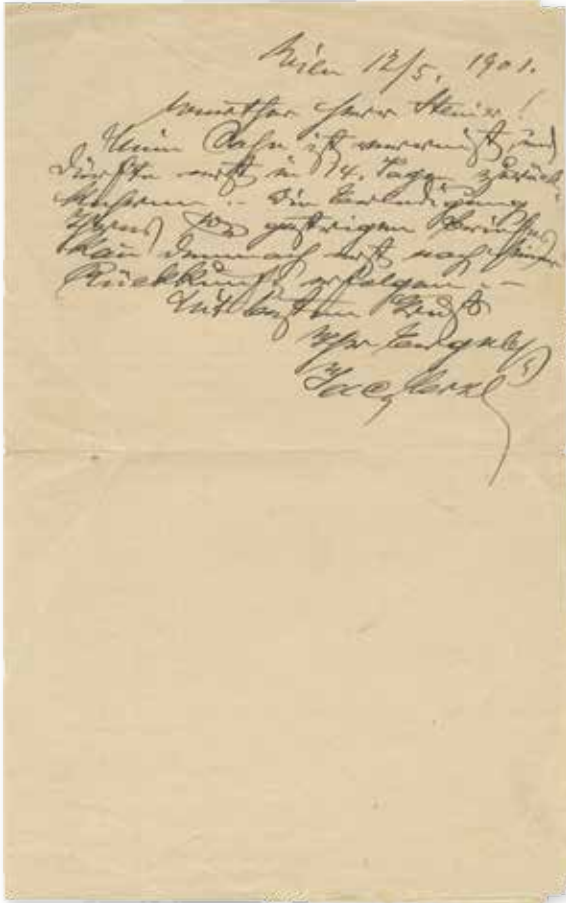 Wien 12/5. 1901.
Herr Steiner!
Mein Sohn ist verreist, und
dürfte erst in 14. Tagen zurück-
kehren. – Die Erledigung
Ihres gestrigen
kan demnach erst nach seiner
Rückkunft erfolgen. –
Mit bestem Gruß
Ihr
Jac. Herzl